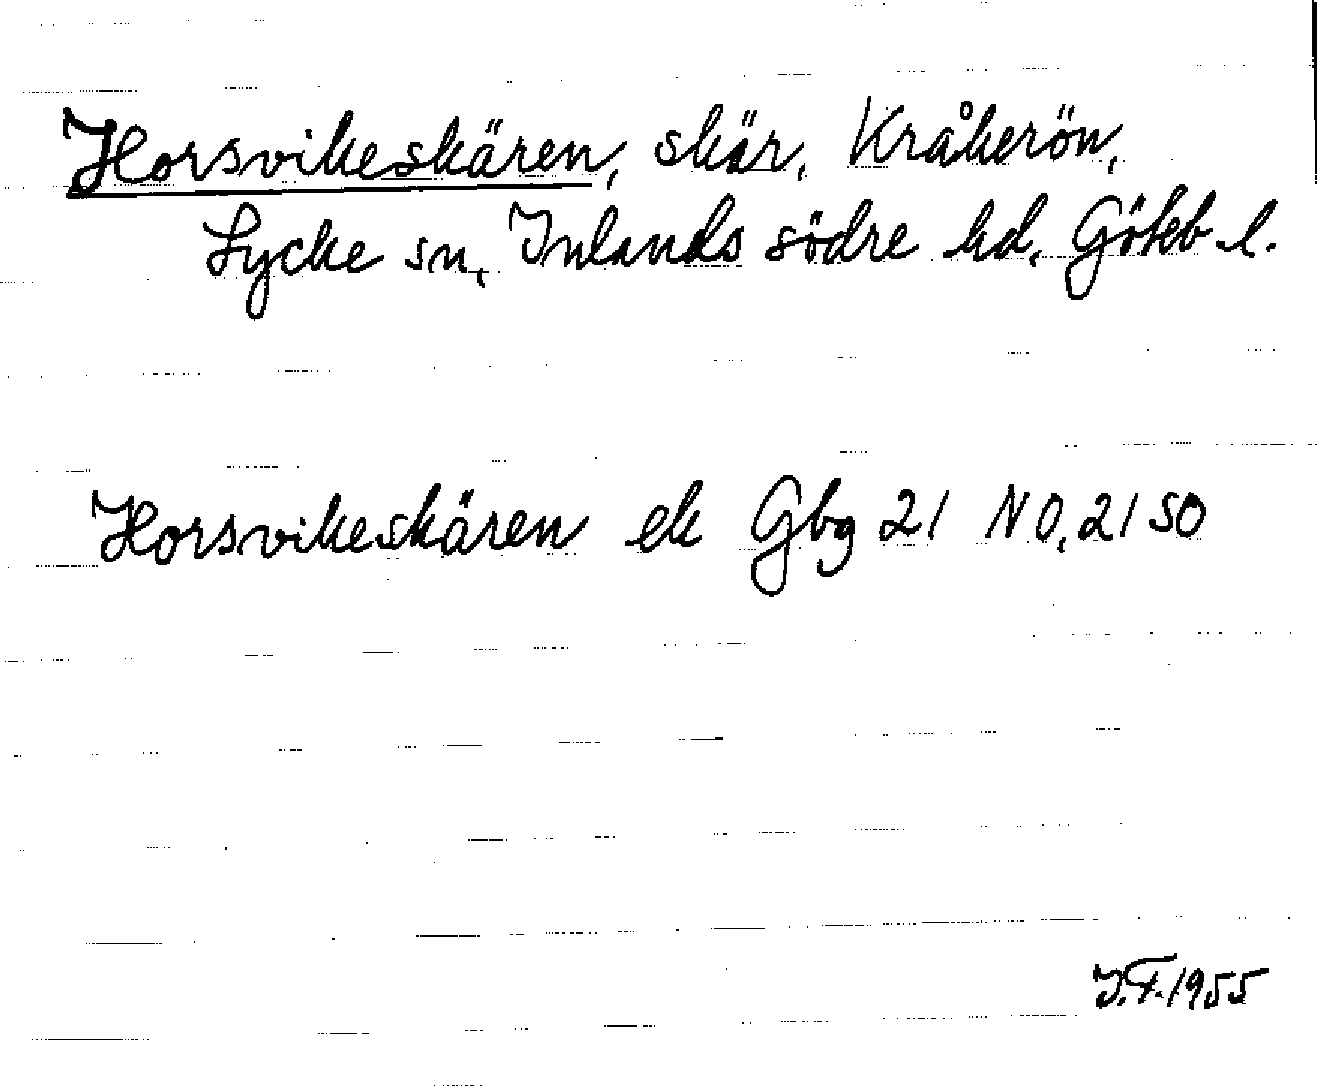 Horsvikeskären, skär, Kråkerön,
Lycke sn, Inlands södre hd, Göteb l.
Horsvikeskären ek Gbg 21 NO, 21 SO
I.F. 1955